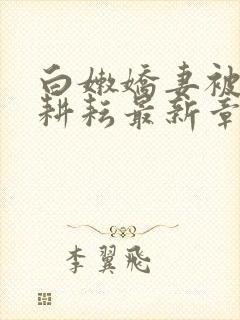 白嫩嬌妻被
耕耘最新章
李翼飛